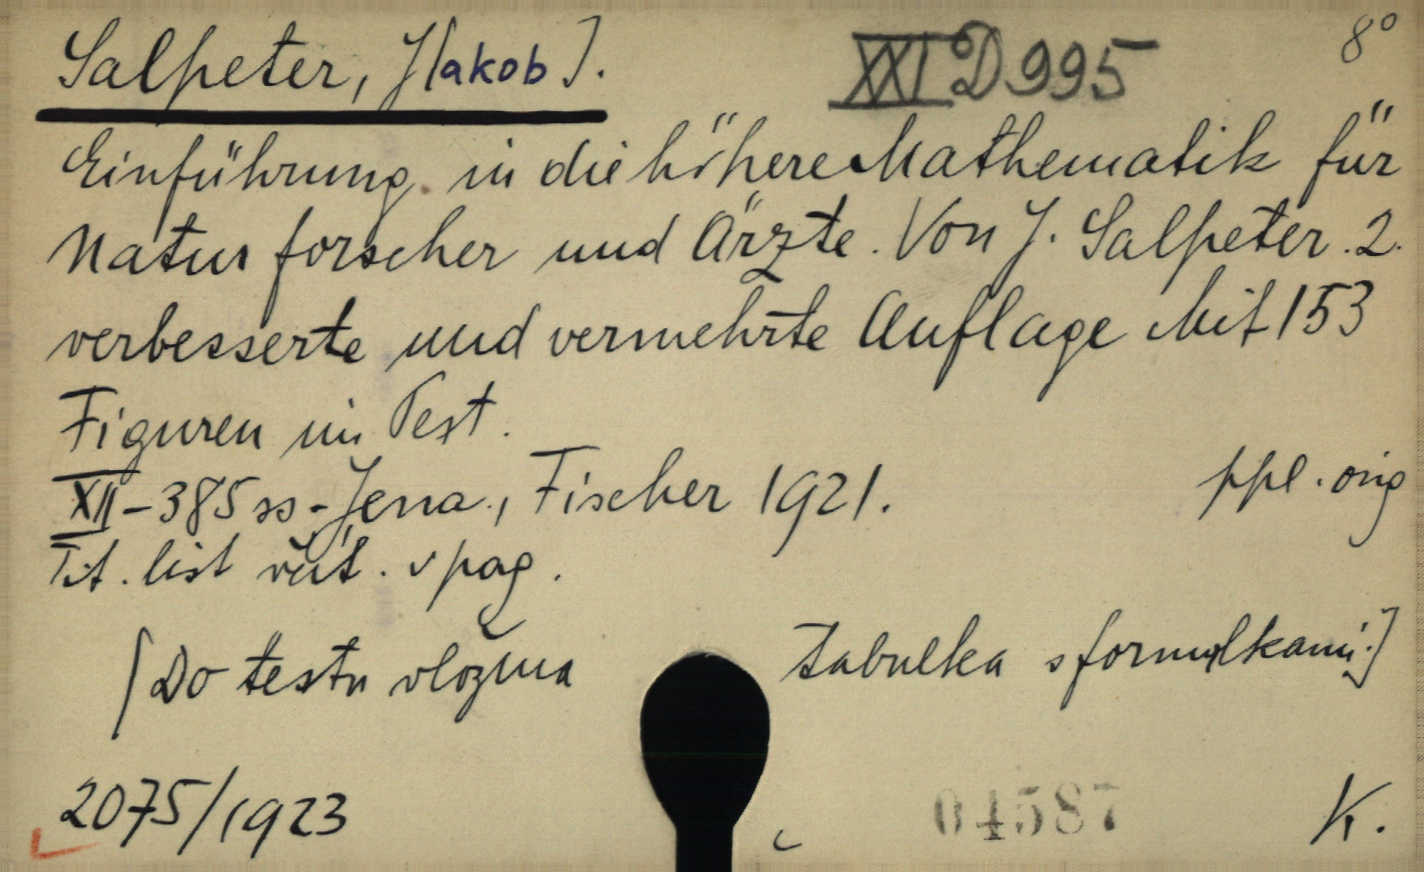 Salpeter, J[akob]. XXI D 995 8°
Einführung in die höhere Mathematik für
Naturforscher und Ärzte. Von J. Salpeter. 2.
verbesserte und vermehrte Auflage Mit 153
Figuren im Text.
XII - 385 ss - Jena, Fischer 1921. ppl. orig
Tit. list včít. v pag.
[Do textu vložena tabulka s formulkami.]
2075/1923 04587 K.